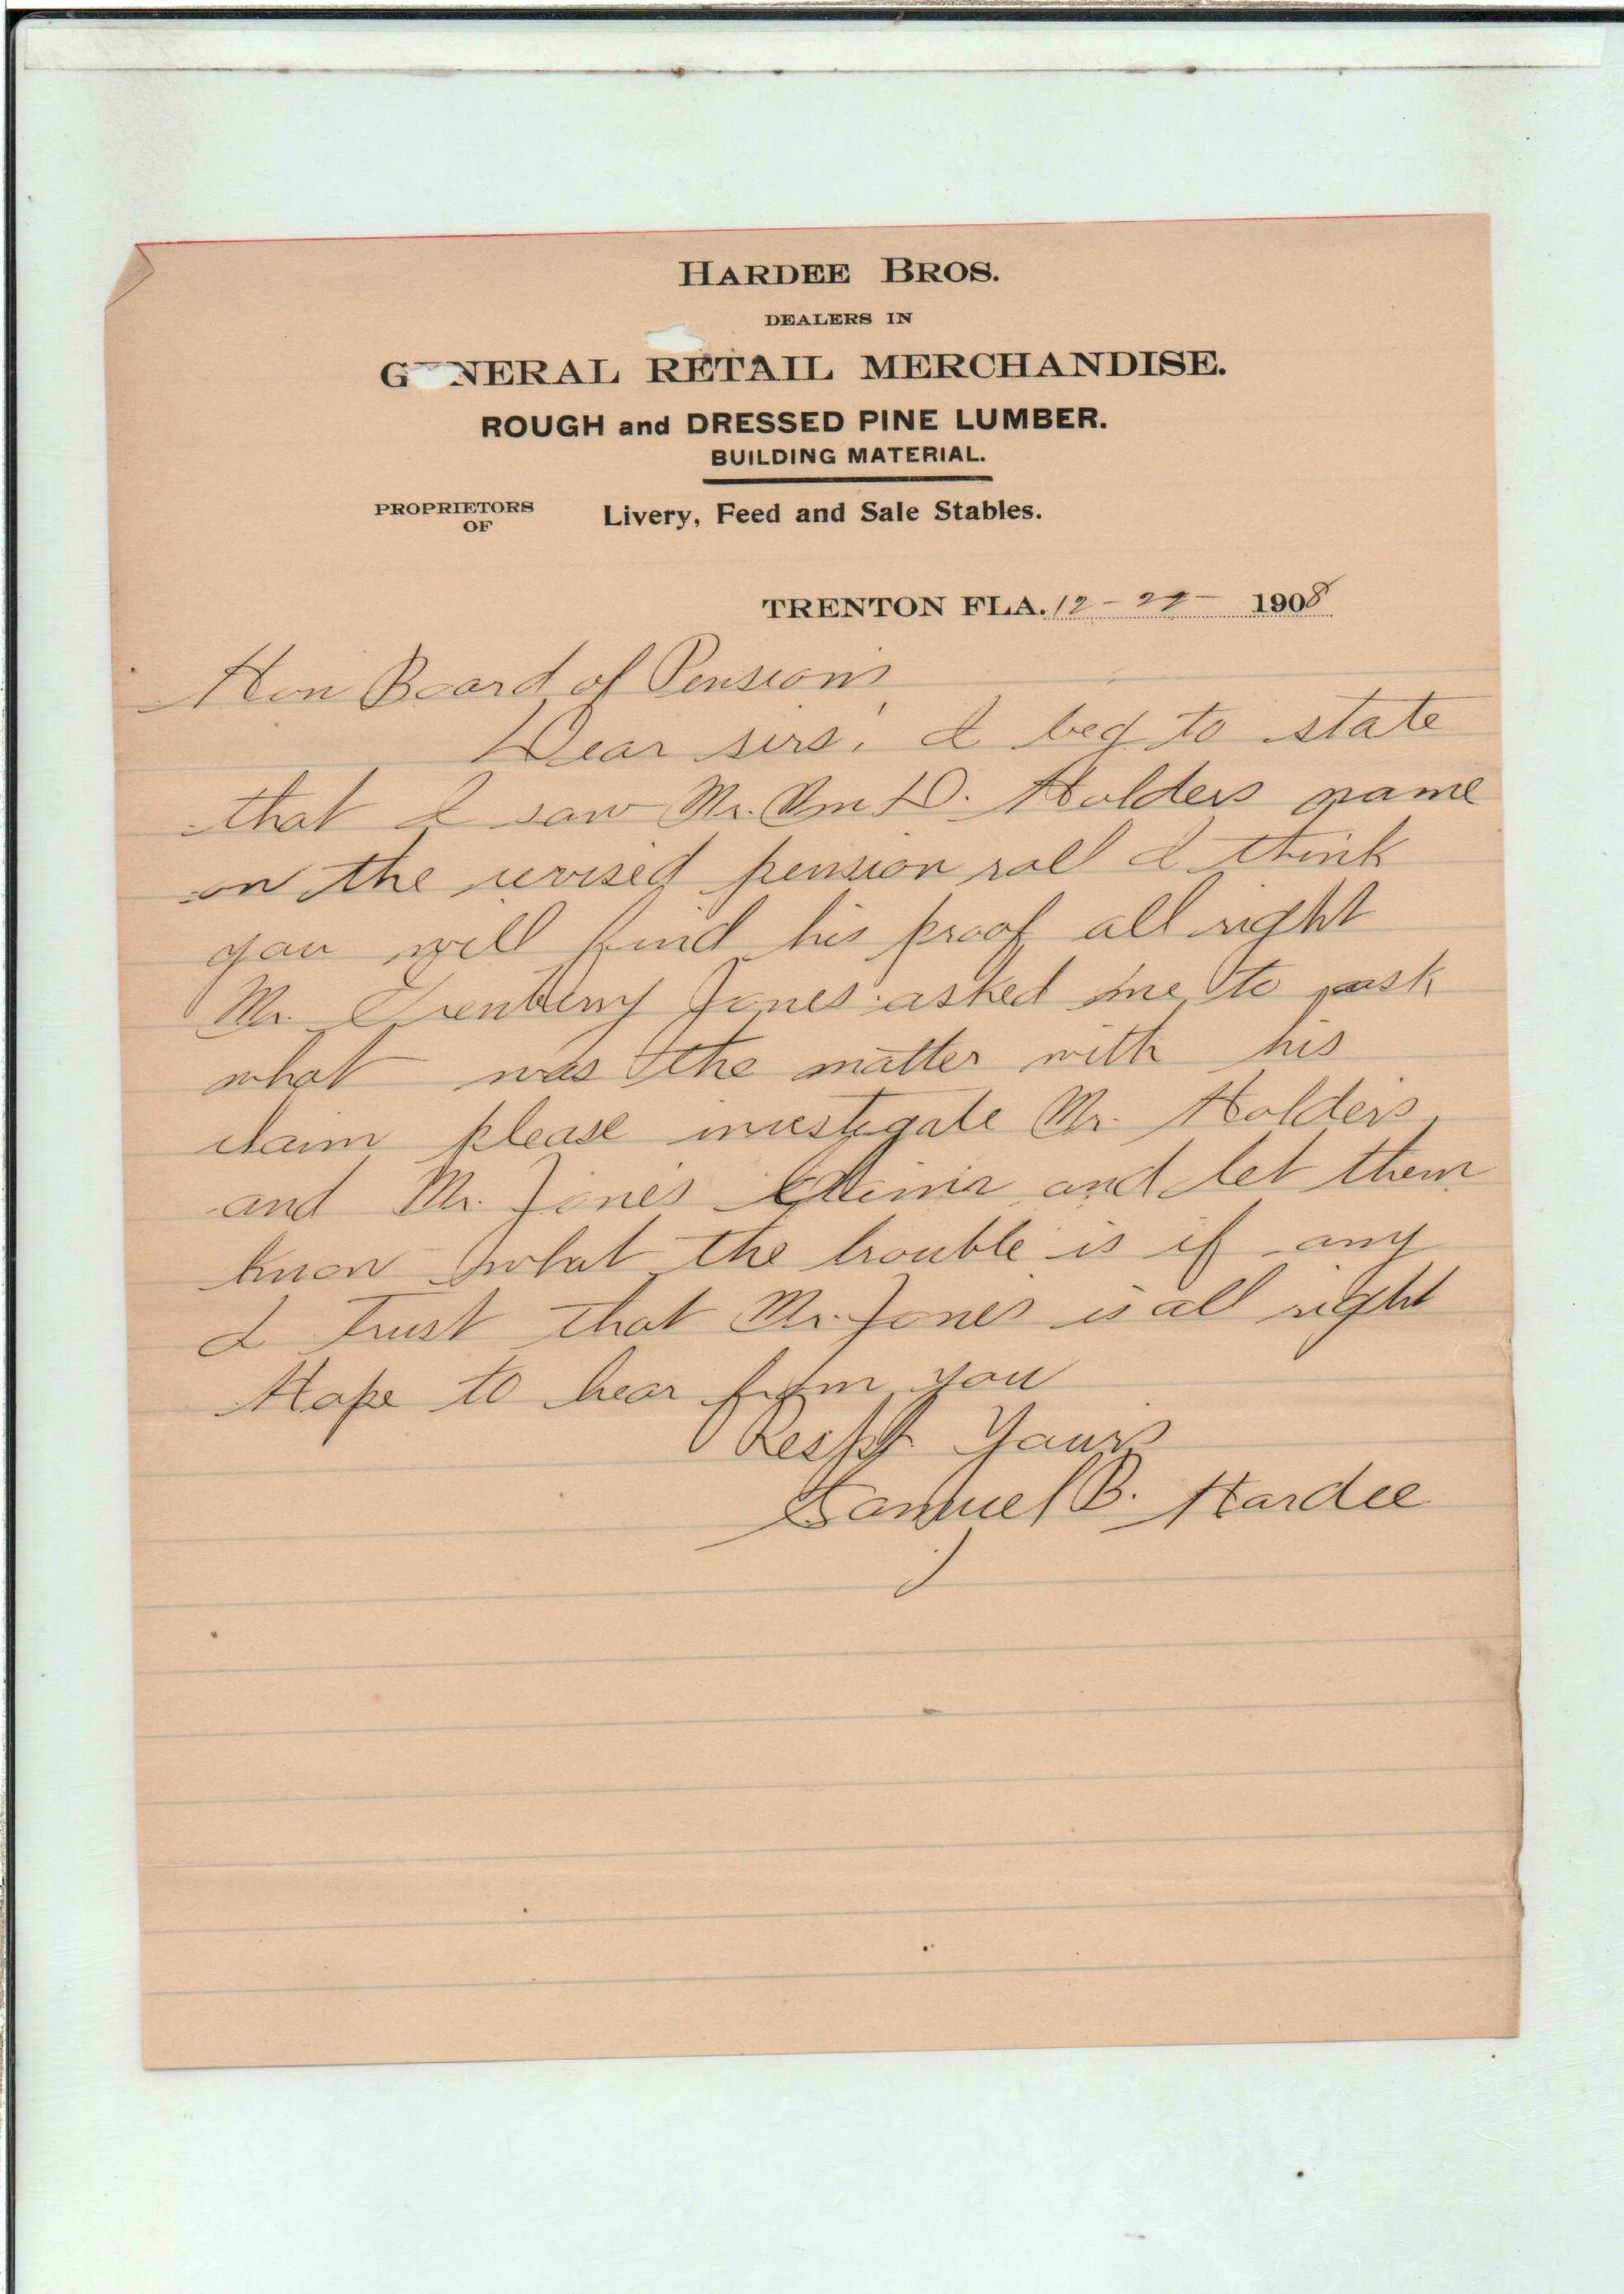 HARDEE BROS.
DEALERS IN
G NERAL RETAIL MERCHANDISE.
ROUGH and DRESSED PINE LUMBER.
BUILDING MATERIAL.
PROPRIETORS OF Livery, Feed and Sale Stables.
TRENTON FLA. 12- 1908
Hon Board of Pensions
Dear sirs, I beg to state
that I saw Mr. Wm D. Holders name
on the revised pension roll I think
you will find his proof all right
Mr. Jones asked me to ask
what was the matter with his
claim please investigate Mr. Holders
and Mr. Jones claim and let them
know what the trouble is if any
I trust that Mr. Jones is all right
Hope to hear from you
Respt Yours
Samuel B. Hardee